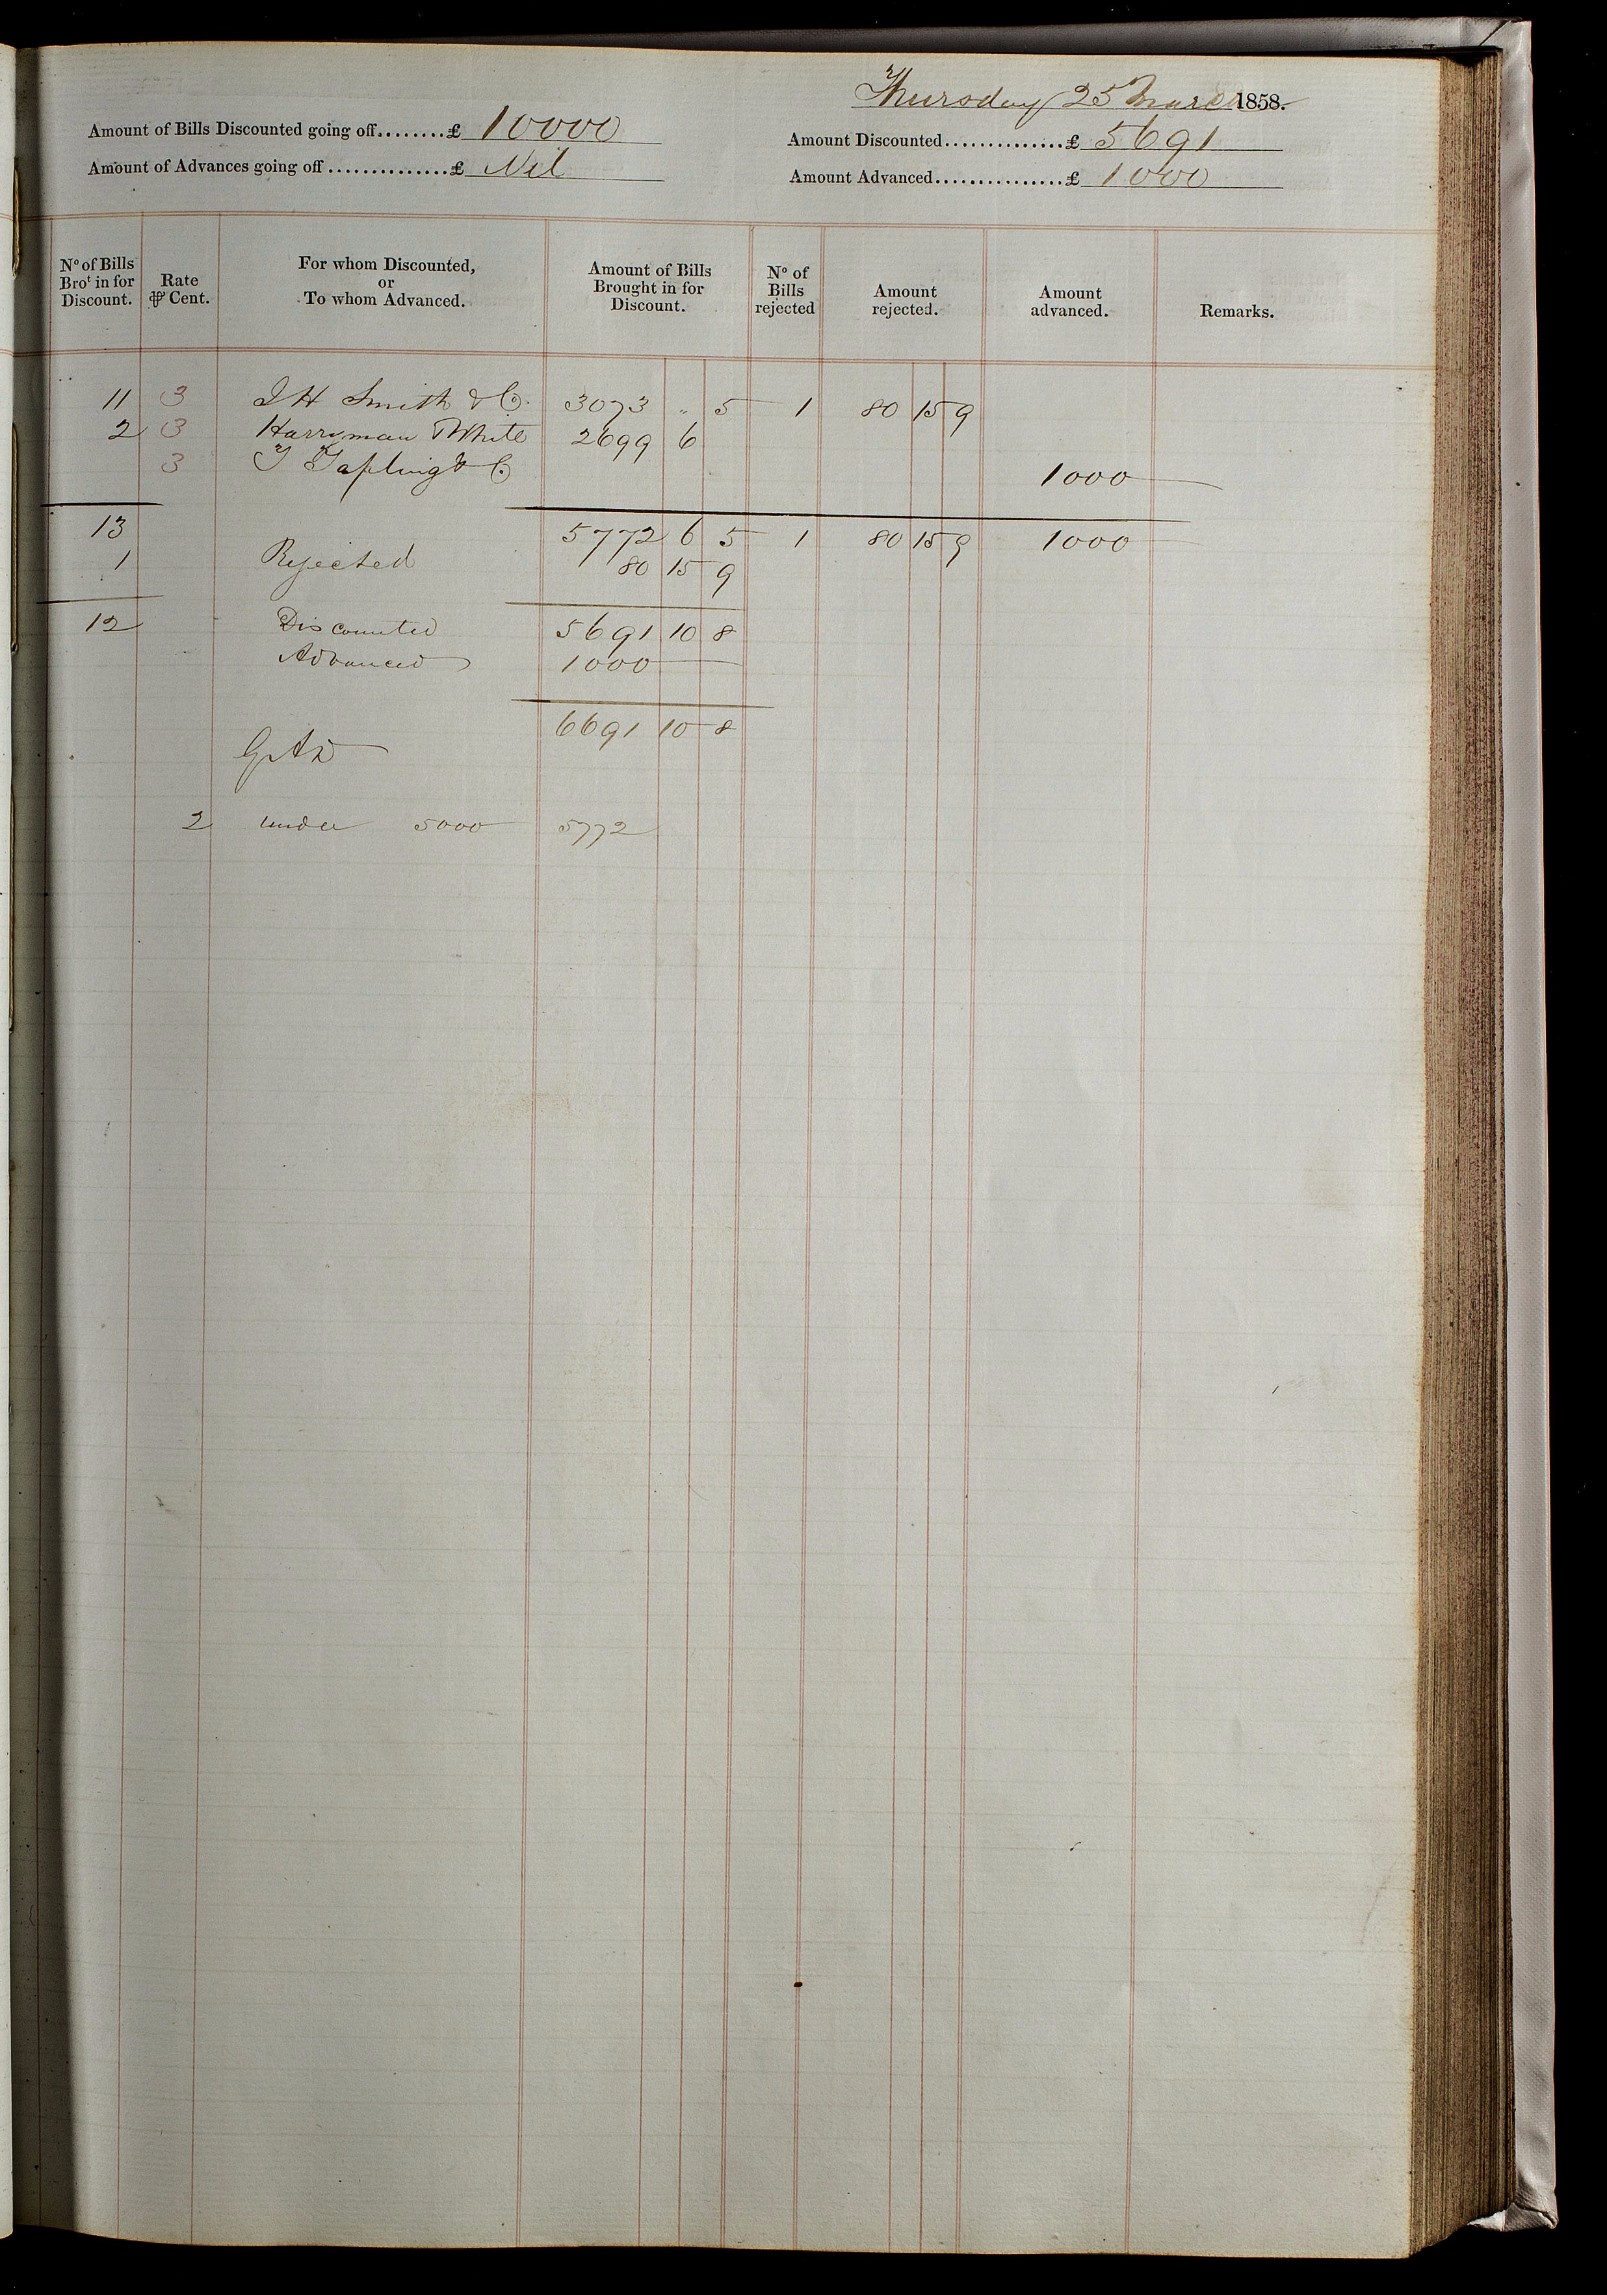 Thursday 25 March 1858.
Amount of Bills Discounted going off........£ 10000
Amount Discounted..............£ 5691
Amount of Advances going off...............£ Nil
Amount Advanced................£ 1000
No of Bills Brot in for Discount. Rate ⅌ Cent. For whom Discounted, or To whom Advanced. Amount of Bills Brought in for Discount. No of Bills rejected Amount rejected. Amount advanced. Remarks.
11 3 J H Smith & Co. 3073 " 5 1 80 15 9
2 3 Harryman & White 2699 6
3 T Tapling & Co 1000
13 5772 6 5 1 80 15 9 1000
1 Rejected 80 15 9
12 Discounted 5691 10 8
Advanced 1000
6691 10 8
2 under 5000 5772